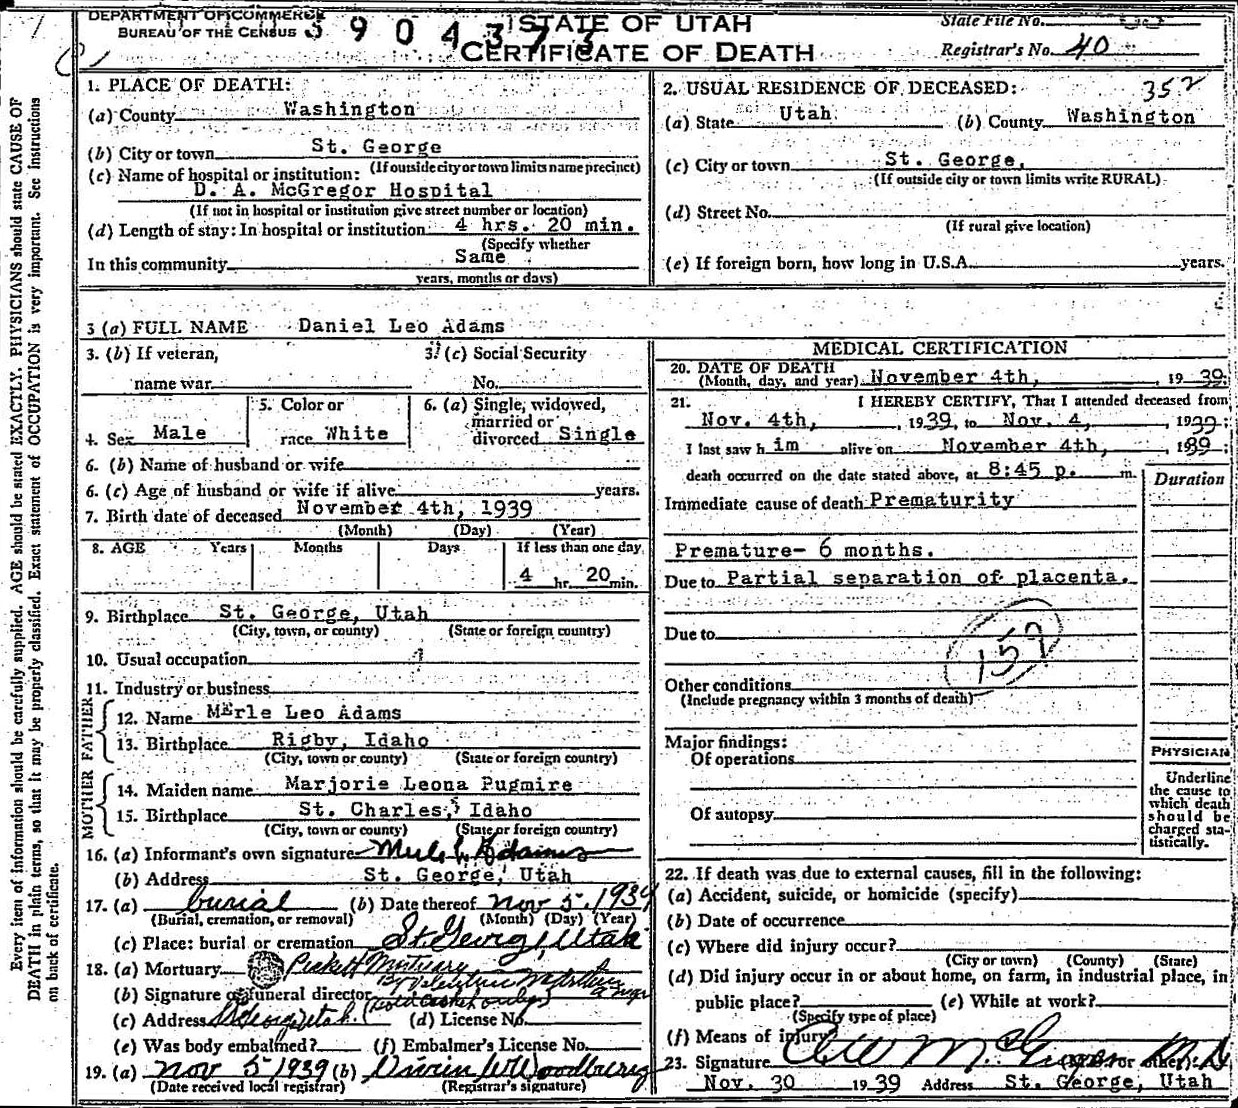 DEPARTMENT OF COMMERCE
BUREAU OF THE CENSUS
3 9 0 4 3 7 3
STATE OF UTAH
CERTIFICATE OF DEATH
State File No.
Registrar's No. 40
352
Every item of information should be carefully supplied. AGE should be stated EXACTLY. PHYSICIANS should state CAUSE OF
DEATH in plain terms, so that it may be properly classified. Exact statement of OCCUPATION is very important. See instructions
on back of certificate.
1. PLACE OF DEATH:
(a) County Washington
(b) City or town St. George
(If outside city or town limits name precinct)
(c) Name of hospital or institution:
D. A. McGregor Hospital
(If not in hospital or institution give street number or location)
(d) Length of stay: In hospital or institution 4 hrs. 20 min.
(Specify whether
In this community Same
years, months or days)
2. USUAL RESIDENCE OF DECEASED:
(a) State Utah (b) County Washington
(c) City or town St. George,
(If outside city or town limits write RURAL)
(d) Street No.
(If rural give location)
(e) If foreign born, how long in U.S.A. years.
3 (a) FULL NAME Daniel Leo Adams
3. (b) If veteran,
name war
3. (c) Social Security
No.
4. Sex Male
5. Color or
race White
6. (a) Single, widowed,
married or
divorced Single
6. (b) Name of husband or wife
6. (c) Age of husband or wife if alive years.
7. Birth date of deceased November 4th, 1939
(Month) (Day) (Year)
8. AGE Years Months Days If less than one day
4 hr. 20 min.
9. Birthplace St. George, Utah
(City, town, or county) (State or foreign country)
10. Usual occupation
11. Industry or business
FATHER
12. Name Merle Leo Adams
13. Birthplace Rigby, Idaho
(City, town or county) (State or foreign country)
MOTHER
14. Maiden name Marjorie Leona Pugmire
15. Birthplace St. Charles, Idaho
(City, town or county) (State or foreign country)
16. (a) Informant's own signature Merle L Adams
(b) Address St. George, Utah
17. (a) burial (b) Date thereof Nov 5, 1939
(Burial, cremation, or removal) (Month) (Day) (Year)
(c) Place: burial or cremation St. George, Utah
18. (a) Mortuary Pickett Mortuary
(b) Signature of funeral director (sold casket only)
(c) Address St George, Utah. (d) License No.
(e) Was body embalmed? (f) Embalmer's License No.
19. (a) Nov 5 1939 (b) Woodbury
(Date received local registrar) (Registrar's signature)
MEDICAL CERTIFICATION
20. DATE OF DEATH
(Month, day, and year) November 4th, 19 39;
21. I HEREBY CERTIFY, That I attended deceased from
Nov. 4th, 1939, to Nov. 4, 1939;
I last saw h im alive on November 4th, 1939;
death occurred on the date stated above, at 8:45 p. m.
Duration
Immediate cause of death Prematurity
Premature- 6 months.
Due to Partial separation of placenta.
Due to
159
Other conditions
(Include pregnancy within 3 months of death)
Major findings:
Of operations
Of autopsy
PHYSICIAN
Underline
the cause to
which death
should be
charged sta-
tistically.
22. If death was due to external causes, fill in the following:
(a) Accident, suicide, or homicide (specify)
(b) Date of occurrence
(c) Where did injury occur?
(City or town) (County) (State)
(d) Did injury occur in or about home, on farm, in industrial place, in
public place? (e) While at work?
(Specify type of place)
(f) Means of injury
23. Signature McGregor M D (M.D. or other)
Nov. 30 1939 Address St. George, Utah